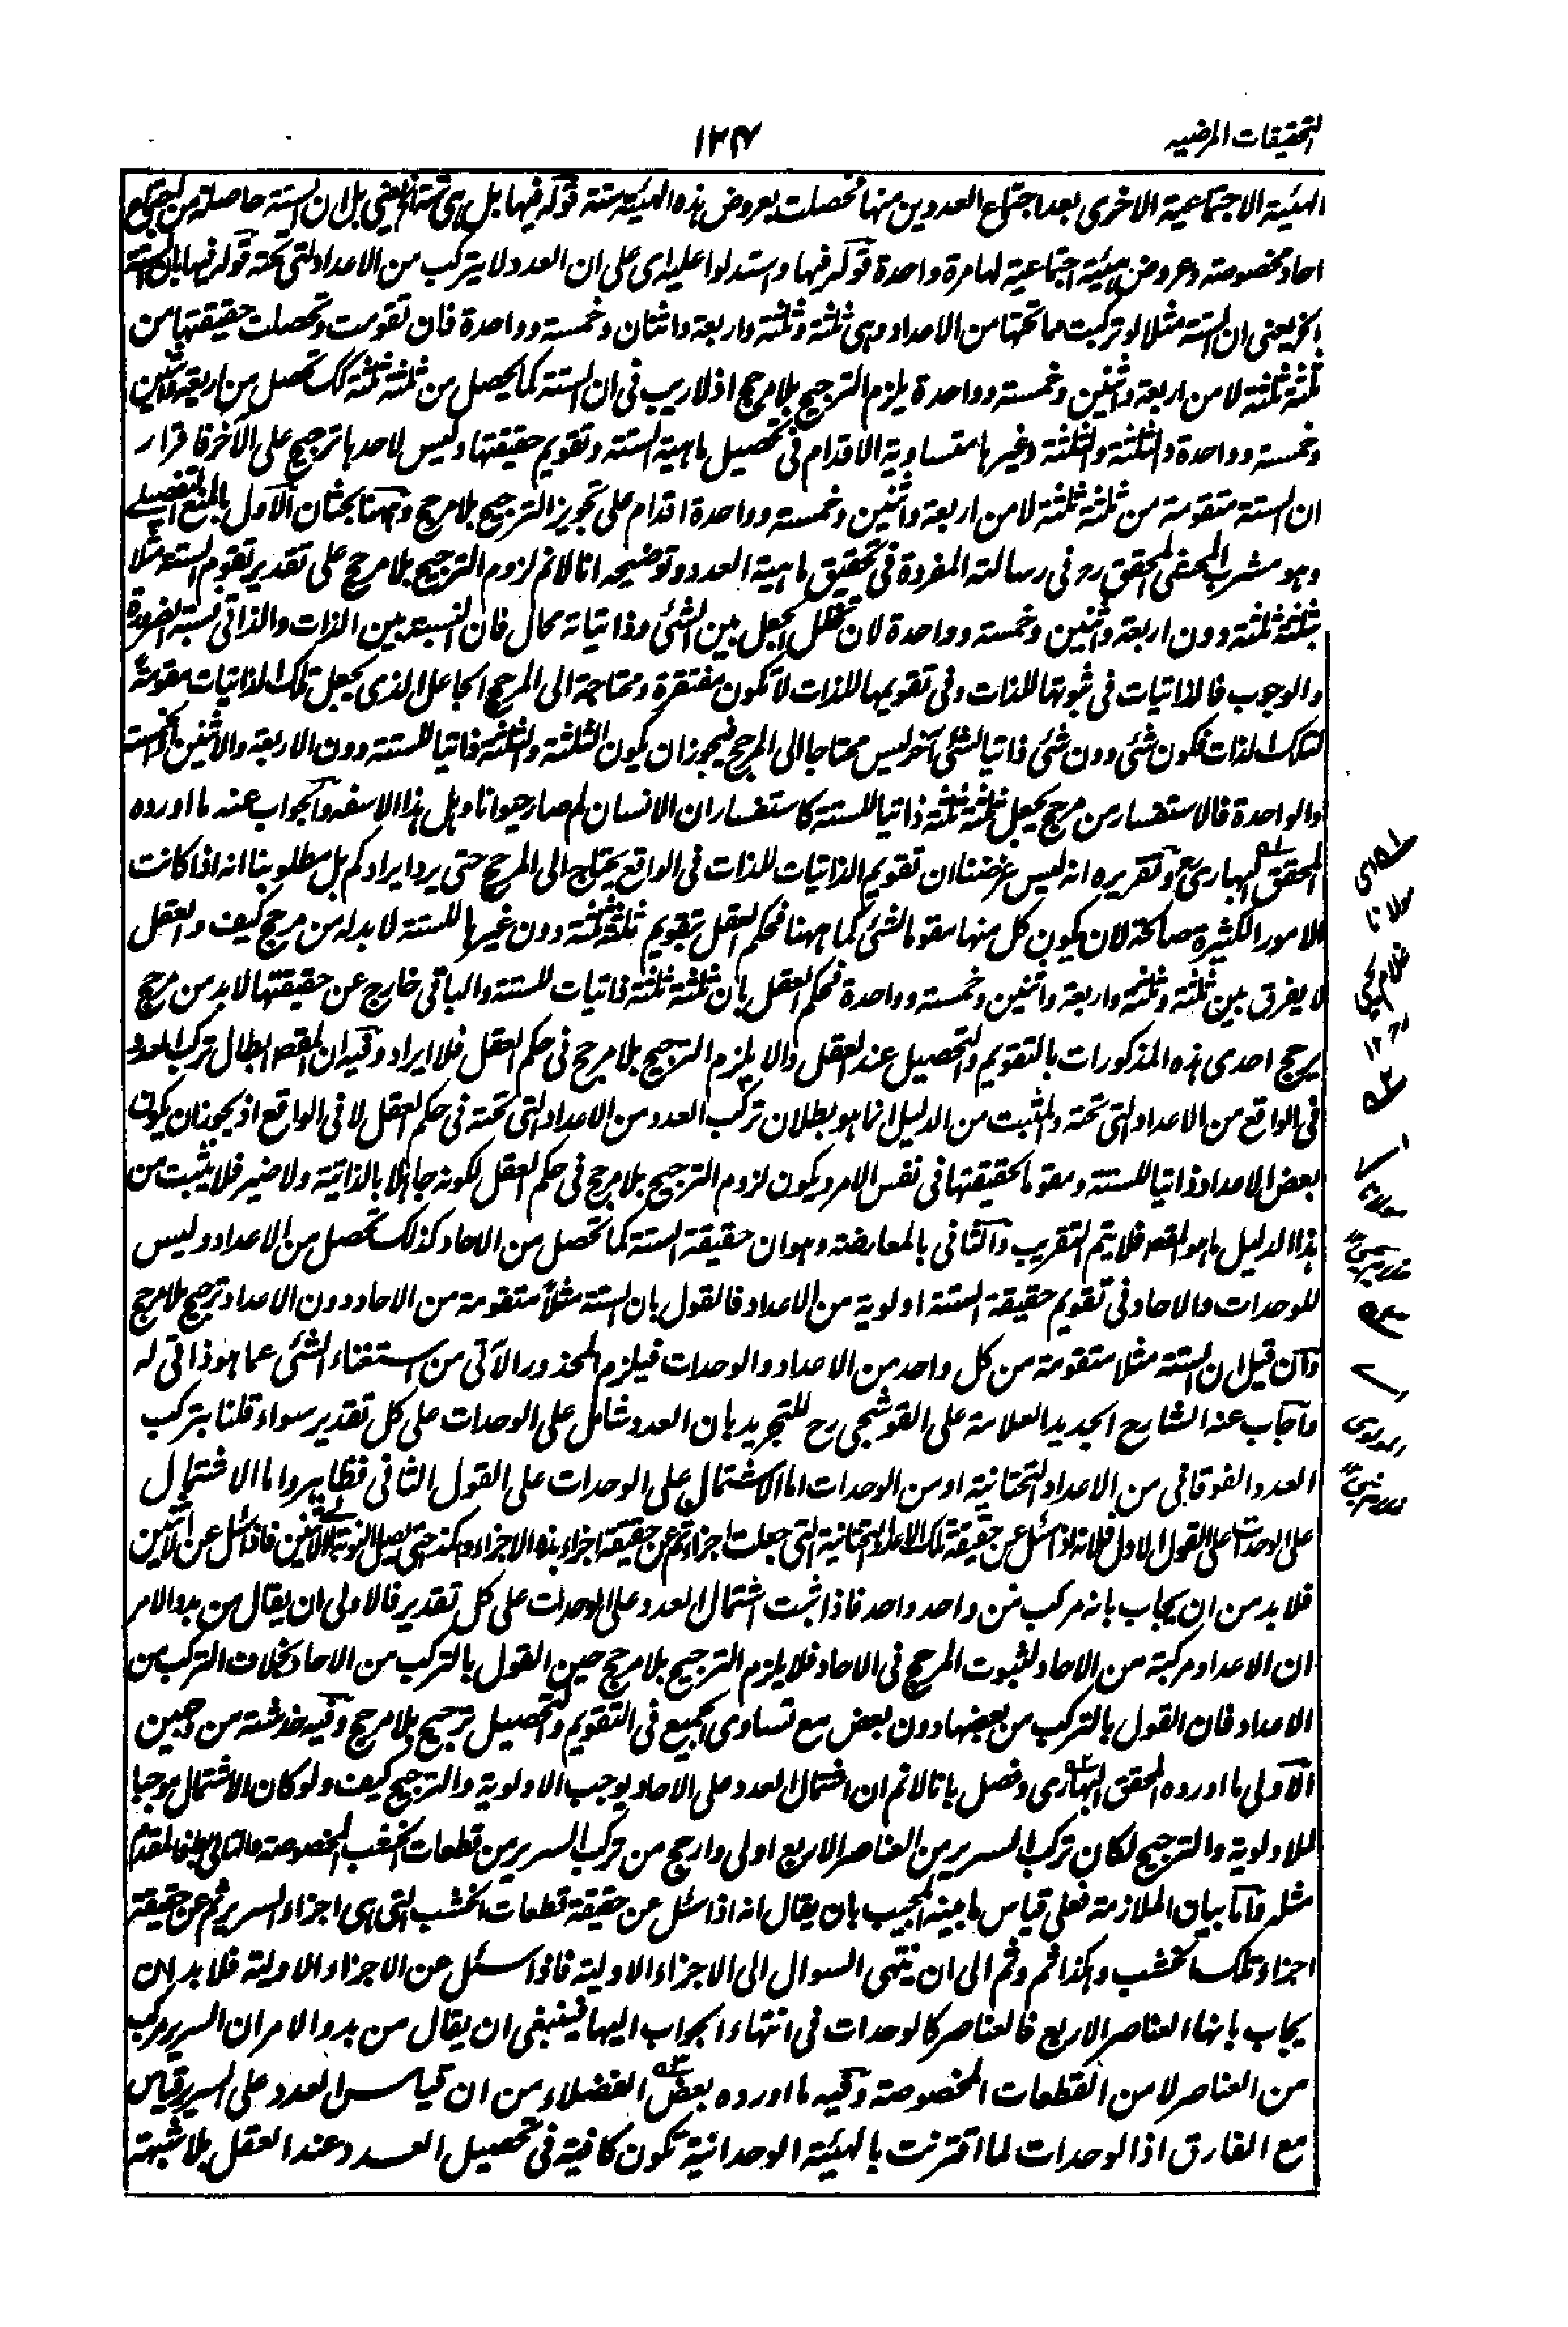 التحقيقات المرضيه
١٢٧
الهيئة الاجتماعية الاخرى بعد اجتماع العددين منها تحصلت بعروض هذه الهيئة ستة قوله فيها بل هى ستة الخ يعنى بل ان الستة حاصلة من
احاد مخصوصة وعروض هيئة اجتماعية لها مرة واحدة قوله فيها واستدلوا عليه اى على ان العدد لا يتركب من الاعداد التى تحته قوله فيها بان الستة
الخ يعنى ان الستة مثلا لو تركبت مما تحتها من الاعداد وهى ثلثة وثلثة واربعة واثنان وخمسة وواحدة فان تقومت وتحصلت حقيقتها من
ثلثة ثلثة لا من اربعة واثنين وخمسة وواحدة يلزم الترجيح بلا مرجح اذ لا ريب فى ان الستة كما يحصل من ثلثة ثلثة كك تحصل من اربعة واثنين
وخمسة وواحدة والثلثة والثلثة وغيرها متساوية الاقدام فى تحصيل ماهية الستة وتقويم حقيقتها وليس لاحدها ترجيح على الآخر فاقرار
ان الستة متقومة من ثلثة ثلثة لا من اربعة واثنين وخمسة وواحدة اقدام على تجويز الترجيح بلا مرجح وههنا بحثان الاول بالمنع التفصيلى
وهو مشرب المحشى المحقق رح فى رسالته المفردة فى تحقيق ماهية العدد وتوضيحه انا لا نم لزوم الترجيح بلا مرجح على تقدير تقوم الستة مثلا
بثلثة ثلثة دون اربعة واثنين وخمسة وواحدة لان تخلل الجعل بين الشئ وذاتياته محال فان النسبة بين الذات والذاتى نسبة الضرورة
والوجوب فالذاتيات فى ثبوتها للذات وفى تقويمها للذات لا تكون مفتقرة ومحتاجة الى المرجح الجاعل الذى يجعل تلك الذاتيات مقومة
لتلك الذات فكون شئ دون شئ ذاتيا لشئ آخر ليس محتاجا الى المرجح فيجوز ان يكون الثلثة والثلثة ذاتيا للستة دون الاربعة والاثنين والخمسة
والواحدة فالاستفسار من مرجح يجعل ثلثة ثلثة ذاتيا للستة كاستفسار ان الانسان لم صار حيوانا وهل هذا الا سفه والجواب عنه ما اورده
المحقق البهارى رح وتقريره انه ليس غرضنا ان تقويم الذاتيات للذات فى الواقع يحتاج الى المرجح حتى يرد ايرادكم بل مطلوبنا انه اذا كانت
الامور الكثيرة صالحة لان يكون كل منها مقوما لشئ كما ههنا فحكم العقل بتقويم ثلثة ثلثة دون غيرها للستة لا بد له من مرجح كيف والعقل
لا يفرق بين ثلثة وثلثة واربعة واثنين وخمسة وواحدة فحكم العقل بان ثلثة ثلثة ذاتيات للستة والباقى خارج عن حقيقتها لا بد من مرجح
يرجح احدى هذه المذكورات بالتقويم والتحصيل عند العقل والا يلزم الترجيح بلا مرجح فى حكم العقل فلا ايراد وفيه ان المقص ابطال تركب العدد
فى الواقع من الاعداد التى تحته والمثبت من الدليل انما هو بطلان تركب العدد من الاعداد التى تحته فى حكم العقل لا فى الواقع اذ يجوز ان يكون
بعض الاعداد ذاتيا للستة ومقوما لحقيقتها فى نفس الامر ويكون لزوم الترجيح بلا مرجح فى حكم العقل لكونه جاهلا بالذاتية ولا ضير فلا يثبت من
هذا الدليل ما هو المقص فلا يتم التقريب والثانى بالمعارضة وهو ان حقيقة الستة كما تحصل من الاحاد كذلك تحصل من الاعداد وليس
للوحدات والاحاد فى تقويم حقيقة الستة اولوية من الاعداد فالقول بان الستة مثلاً متقومة من الاحاد دون الاعداد ترجيح بلا مرجح
وان قيل ان الستة مثلا متقومة من كل واحد من الاعداد والوحدات فيلزم المحذور الآتى من استغناء الشئ عما هو ذاتى له
واجاب عنه الشارح الجديد العلامة على القوشجى رح للتجريد بان العدد شامل على الوحدات على كل تقدير سواء قلنا بتركب
العدد الفوقانى من الاعداد التحتانية او من الوحدات اما الاشتمال على الوحدات على القول الثانى فظاهر واما الاشتمال
على الوحدات على القول الاول فلانه اذا سئل عن حقيقة تلك الاعداد التحتانية التى جعلت اجزاء ثم عن حقيقة اجزاء هذه الاجزاء وهكذا حتى يصل النوبة الى الاثنين فاذا سئل عن الاثنين
فلا بد من ان يجاب بانه مركب من واحد واحد فاذا ثبت اشتمال العدد على الوحدات على كل تقدير فالاولى ان يقال من بدو الامر
ان الاعداد مركبة من الاحاد لثبوت المرجح فى الاحاد فلا يلزم الترجيح بلا مرجح حين القول بالتركب من الاحاد بخلاف التركب من
الاعداد فان القول بالتركب من بعضها دون بعض مع تساوى الجميع فى التقويم والتحصيل ترجيح بلا مرجح وفيه خدشة من وجهين
الاولى ما اورده المحقق البهارى وفصل بانا لا نم ان اشتمال العدد على الاحاد يوجب الاولوية والترجيح كيف ولو كان الاشتمال موجبا
للاولوية والترجيح لكان تركب السرير من العناصر الاربع اولى وارجح من تركب السرير من قطعات الخشب المخصوصة والتالى بط فالمقدم
مثله واما بيان الملازمة فعلى قياس ما بينه المجيب بان يقال انه اذا سئل عن حقيقة قطعات الخشب التى هى اجزاء السرير ثم عن حقيقة
اجزاء تلك الخشب وهكذا ثم وثم الى ان ينتهى السوال الى الاجزاء الاولية فاذا سئل عن الاجزاء الاولية فلا بد ان
يجاب بانها العناصر الاربع فالعناصر كالوحدات فى انتهاء الجواب اليها فينبغى ان يقال من بدو الامر ان السرير مركب
من العناصر لا من القطعات المخصوصة وفيه ما اورده بعض الفضلاء من ان قياس العدد على السرير قياس
مع الفارق اذ الوحدات لما اقترنت بالهيئة الوحدانية تكون كافية فى تحصيل العدد عند العقل بلا شبهة
مولانا
غلام يحيى